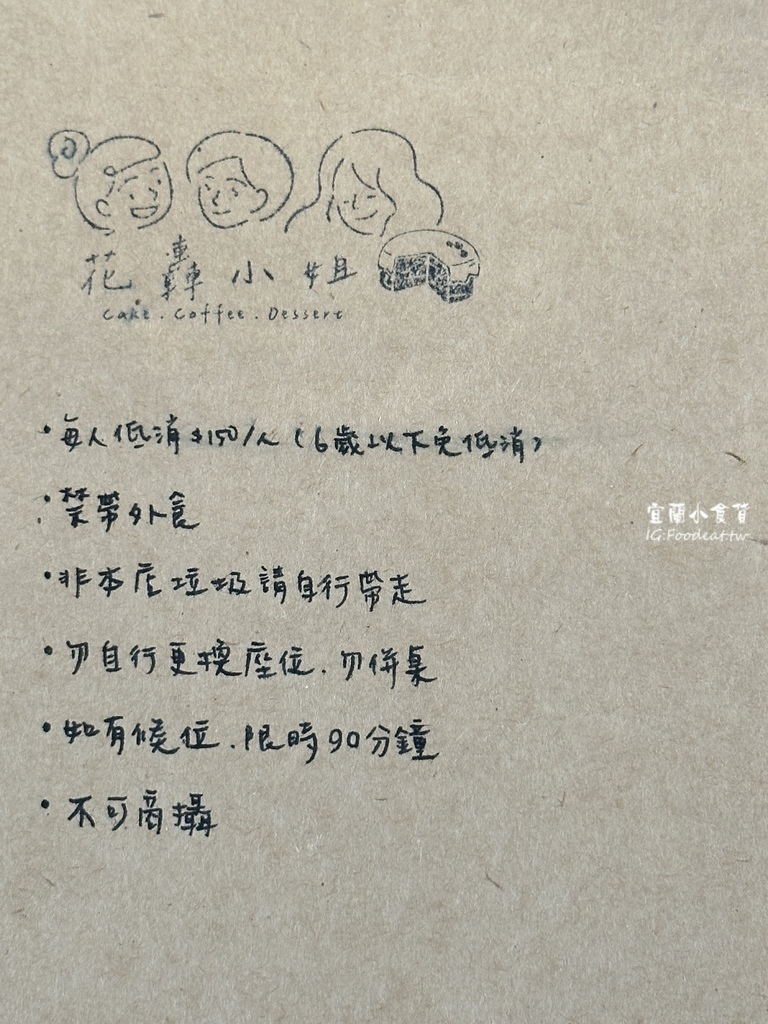 花轟小姐
Cake . Coffee . Dessert
• 每人低消$150/人(6歲以下免低消)
• 禁帶外食
• 非本店垃圾請自行帶走
• 勿自行更換座位、勿併桌
• 如有候位、限時90分鐘
• 不可商攝
宜蘭小食貨
IG:Foodeat.tw